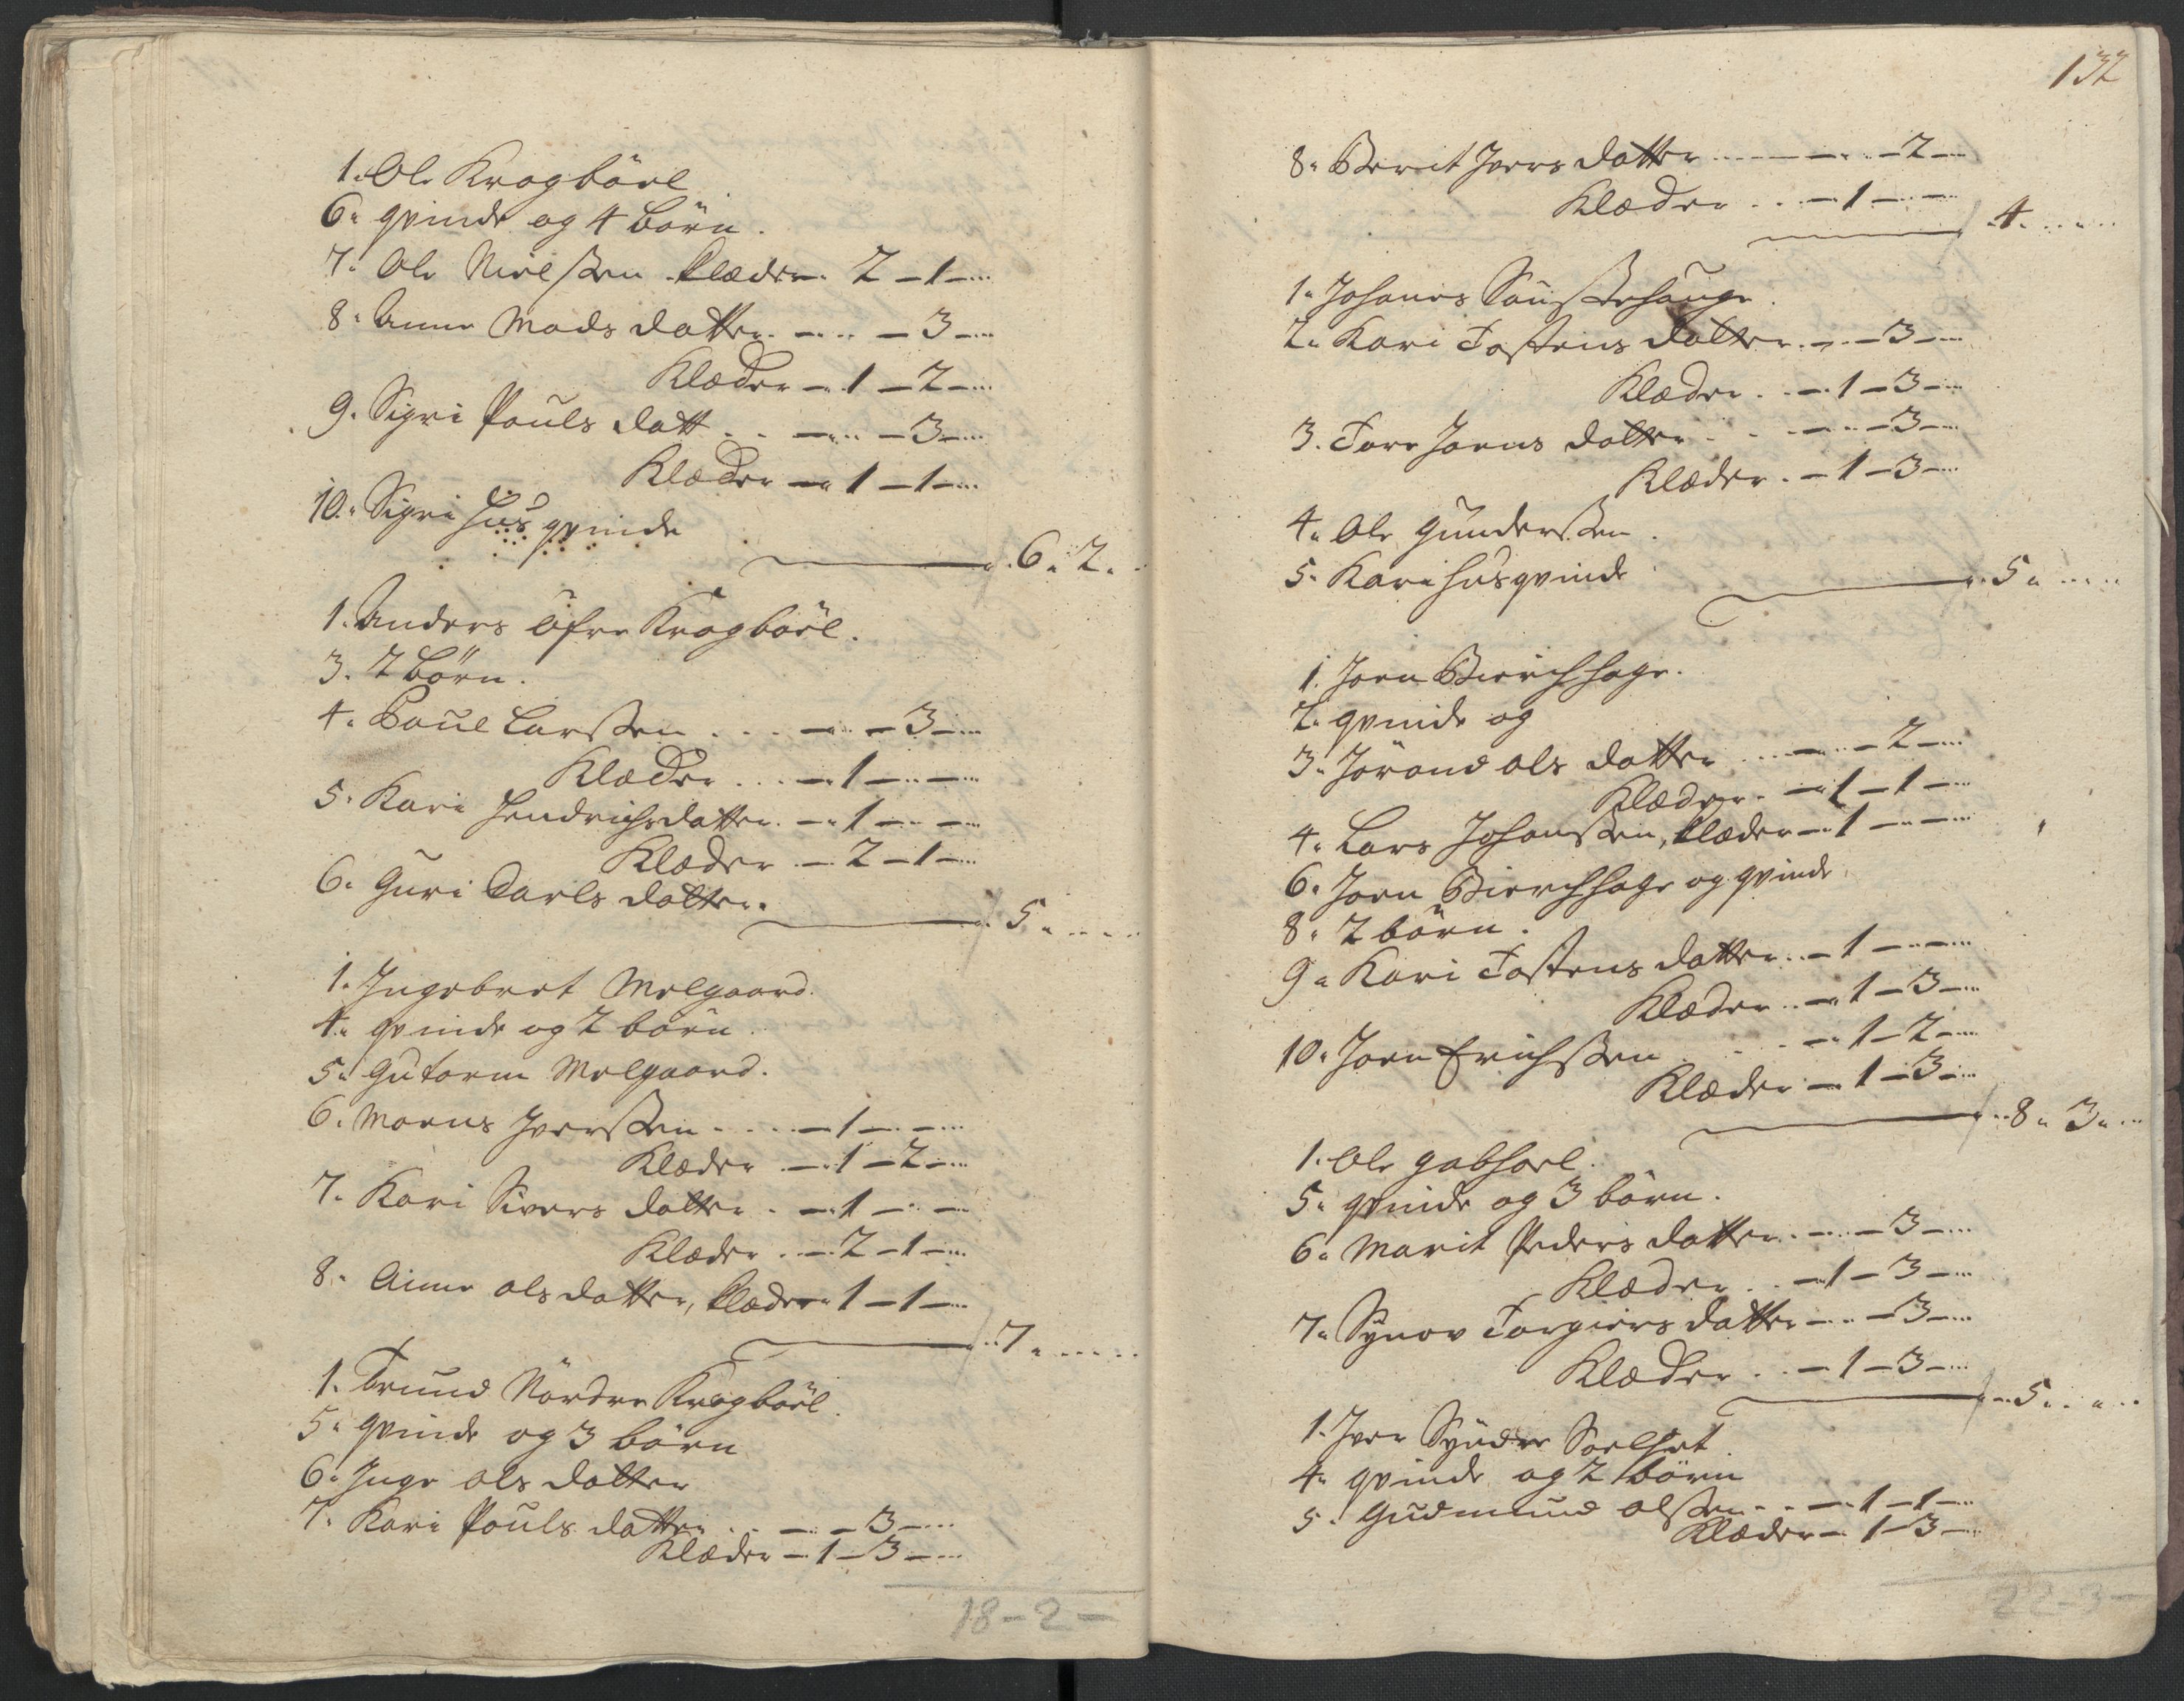 1. Ole Kragböel
6. qvinde og 4 börn.
7. Ole Nielssen klæder. 2 – 1 – ...
8. Anne Mads datter. – .. – 3 – ...
Klæder – 1 – 2 – ...
9. Sigri Pouls datt . . – .. – 3 – ...
Klæder – 1 – 1 – ...
10. Sigri Huusqvinde
6. 2.
1. Anders Öfre Kragböel.
3. 2 börn.
4. Poul Larssen . . . – .. – 3 – ...
Klæder . . . – 1 – .. – ...
5. Kari Hendrichsdatter. – 1 – .. – ...
Klæder . – 2 – 1 – ...
6. Guri Carls datter.
5. . . . .
1. Ingebret Melgaard.
4. qvinde og 2 börn.
5. Gutorm Melgaard.
6. Mons Iverssen . . . . – 1 – .. – ...
Klæder . – 1 – 2 – ...
7. Kari Sivers datter . – 1 – .. – ...
Klæder . . – 2 – 1 – ...
8. Anne ols datter, klæder 1 – 1 – ...
7. . . . .
1. Trund Nördre Kragböel.
5. qvinde og 3 börn
6. Inge ols datter
7. Kari Pouls datter . . – .. – 3 – ...
Klæder – 1 – 3 – ...
18 – 2 –
132
8. Berit Ivers datter . . . . – .. – 2 – ...
Klæder . . – 1 – .. – ...
4. . . . .
1. Johanes
2. Kari Tostens datter . – .. – 3 – ...
Klæder . . – 1 – 3 – ...
3. Tore Joens datter . . – .. – 3 – ...
Klæder . – 1 – 3 – ...
4. Ole Gunderssen.
5. Kari Husqvinde
5. . . . .
1. Joen Bierchhage.
2. qvinde og
3. Jörand ols datter . . – .. – 2 – ...
Klæder. – 1 – 1 – ...
4. Lars Johanssen, klæder – 1 – .. – ...
6. Joen Bierchhage og qvinde
8. 2 börn.
9. Kari Tostens datter . . – 1 – .. – ...
Klæder . . – 1 – 3 – ...
10. Joen Erichssen . . . – 1 – 2 – ...
Klæder – 1 – 3 – ...
8. 3. ...
1. Ole
5. qvinde og 3 börn.
6. Marit Peders datter . – .. – 3 – ...
Klæder . . – 1 – 3 – ...
7. Synov Torgiers datter – .. – 3 – ...
Klæder . . – 1 – 3 – ...
5. . . . .
1. Iver Syndre
4. qvinde og 2 börn
5. Gudmund olssen . . – 1 – 1 – ...
Klæder – 1 – 3 – ...
22 – 3 –